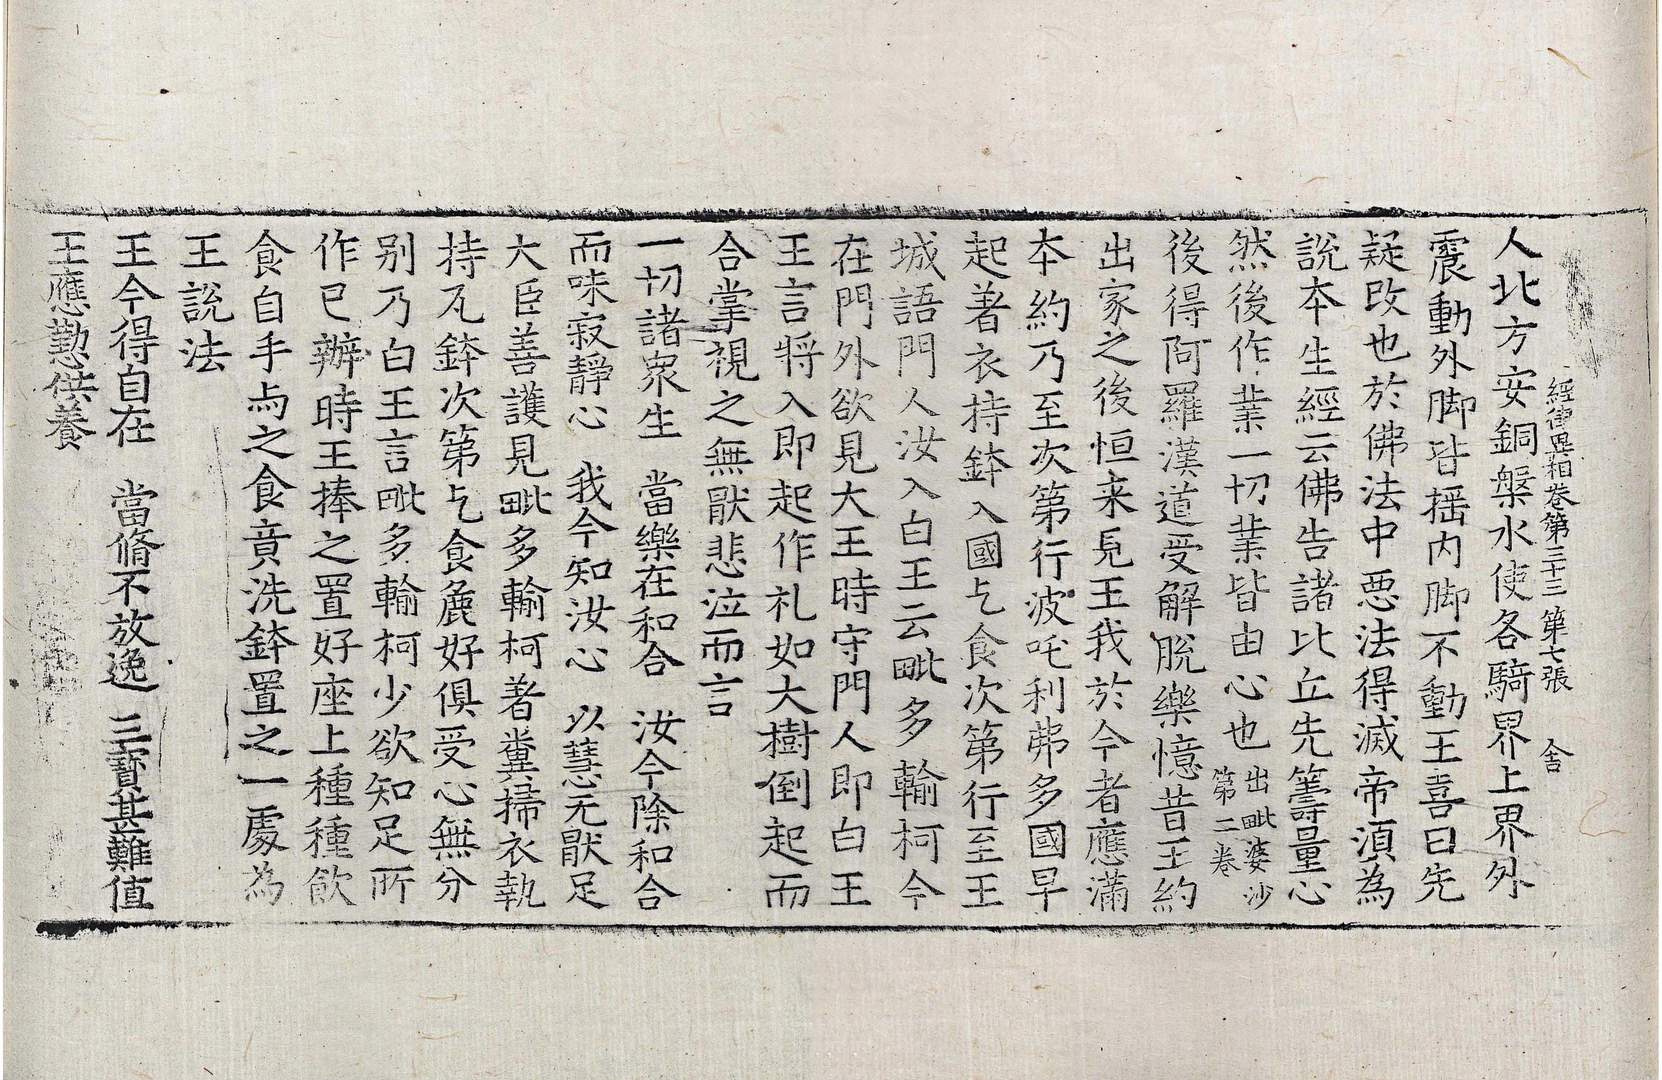 經律異相卷第三十三 第七張 舍
人北方安銅槃水使各騎界上界外
震動外脚皆揺内脚不動王喜曰先
疑攺也於佛法中惡法得滅帝湏為
說本生經云佛告諸比丘先籌量心
然後作業一切業皆由心也出毗婆沙第二卷
後得阿羅漢道受解脫樂憶昔王約
出家之後恒来見王我於今者應滿
本約乃至次第行波吒利弗多國早
起著衣持鉢入國乞食次第行至王
城語門人汝入白王云毗多輸柯今
在門外欲見大王時守門人即白王
王言将入即起作礼如大樹倒起而
合掌視之無猒悲泣而言
一切諸衆生 當樂在和合 汝今除和合
而味寂靜心 我今知汝心 以慧无猒足
大臣善護見毗多輸柯著糞掃衣執
持瓦鉢次第乞食麁好俱受心無分
别乃白王言毗多輸柯少欲知足所
作已辦時王捧之置好座上種種飮
食自手与之食竟洗鉢置之一處為
王說法
王今得自在 當脩不放逸 三寶甚難值
王應懃供養